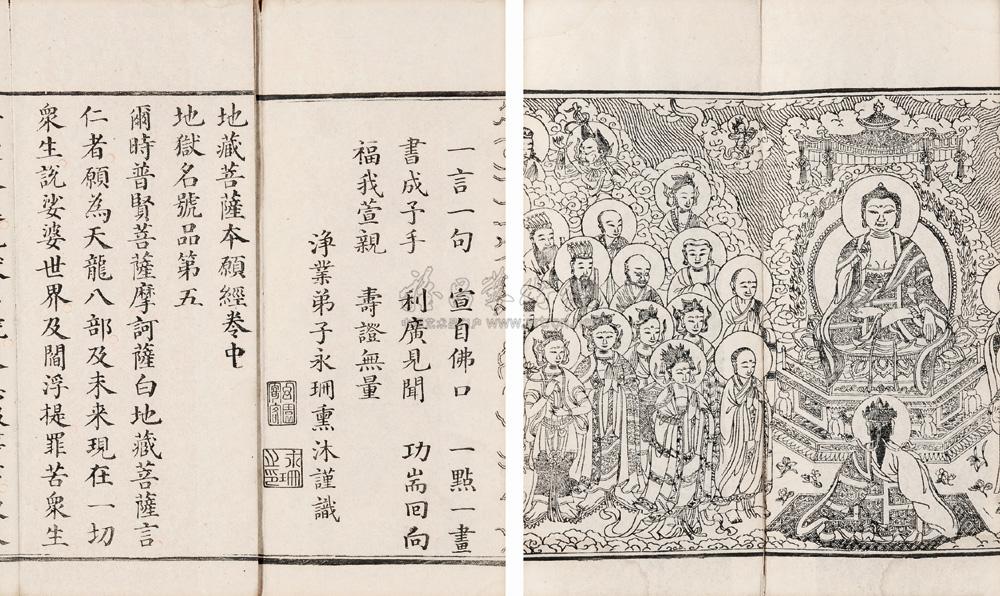 一言一句　宣自佛口　一點一畫
書成子手　利廣見聞　功耑回向
福我萱親　壽證無量
淨業弟子永珊熏沐謹識
永珊之印
地藏菩薩本願經卷中
地獄名號品第五
爾時普賢菩薩摩訶薩白地藏菩薩言
仁者願為天龍八部及未来現在一切
衆生說娑婆世界及閻浮提罪苦衆生